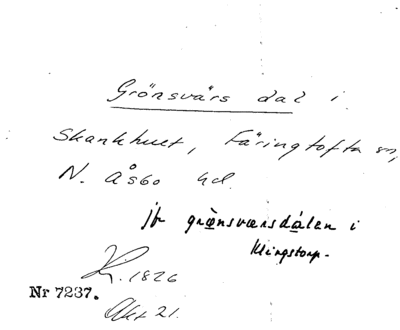 Grönsvårs dal i
Skankhult, Färingtofta sn,
N. Åsbo hd.
jfr grönsværsdálen i
Klingstorp.
K. 1826
Nr 7237.
Akt 21.